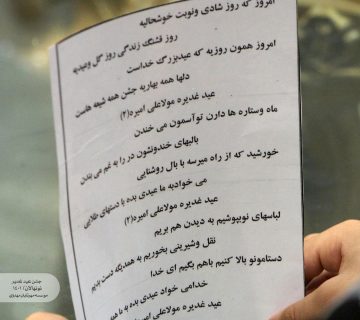 امروز که روز شادی ونوبت خوشحالیه
روز قشنگ زندگی روز گل وعیدیه
امروز همون روزیه که عیدبزرگ خداست
دلها همه بهاریه جشن همه شیعه هاست
عید غدیره مولاعلی امیره(۲)
ماه وستاره ها دارن توآسمون می خندن
بالبهای خندونشون در را به غم می بندن
خورشید که از راه میرسه با بال روشنایی
می خوادبه ما عیدی بده با دستهای طلایی
عید غدیره مولاعلی امیره(۲)
لباسهای نوبپوشیم به دیدن هم بریم
نقل وشیرینی بخوریم به همدیگه دست بدیم
دستامونو بالا کنیم باهم بگیم ای خدا
خدامی خواد عیدی بده به ما
عید غدیره مولاعلی امیره
جشن عید غدیر
نونهالان/۱۴۰۱